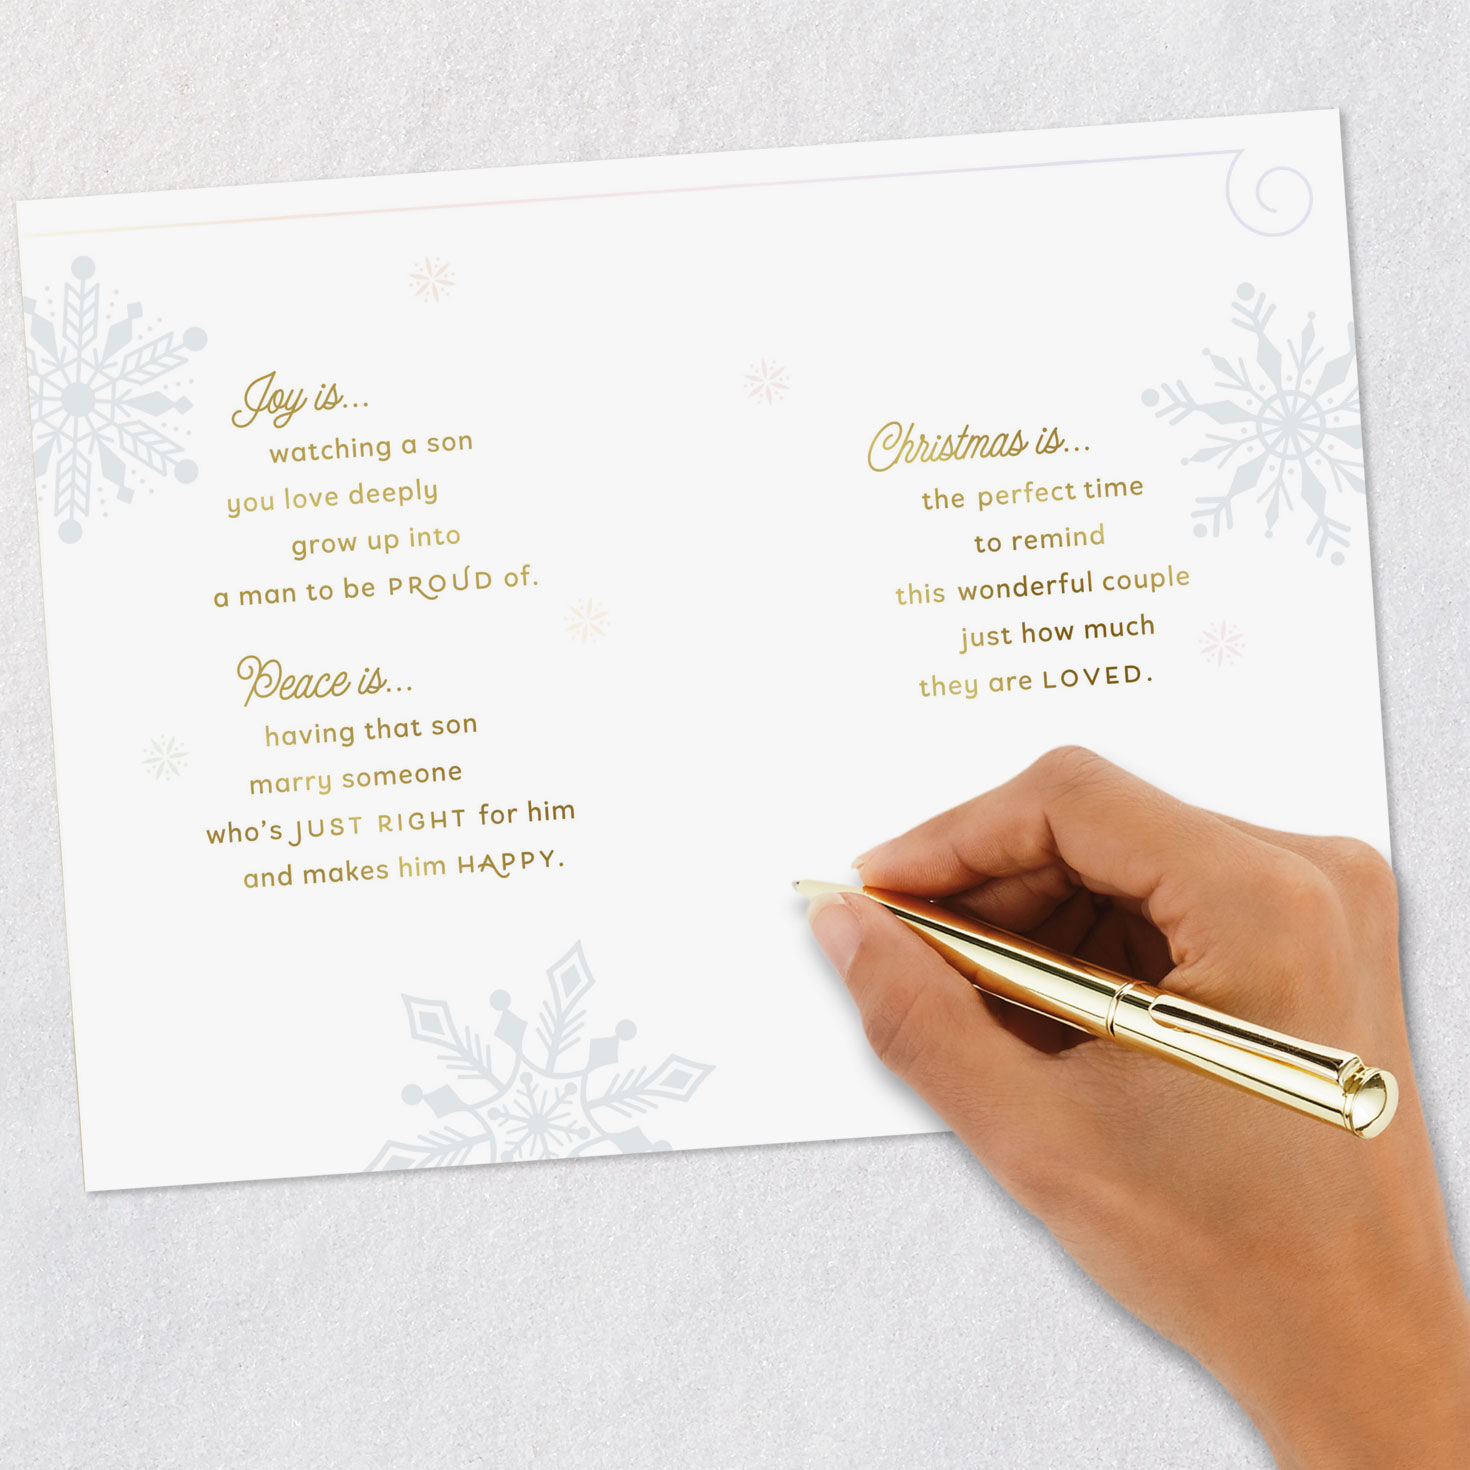 Joy is...
watching a son
you love deeply
grow up into
a man to be PROUD of.
Peace is...
having that son
marry someone
who's JUST RIGHT for him
and makes him HAPPY.
Christmas is...
the perfect time
to remind
this wonderful couple
just how much
they are LOVED.